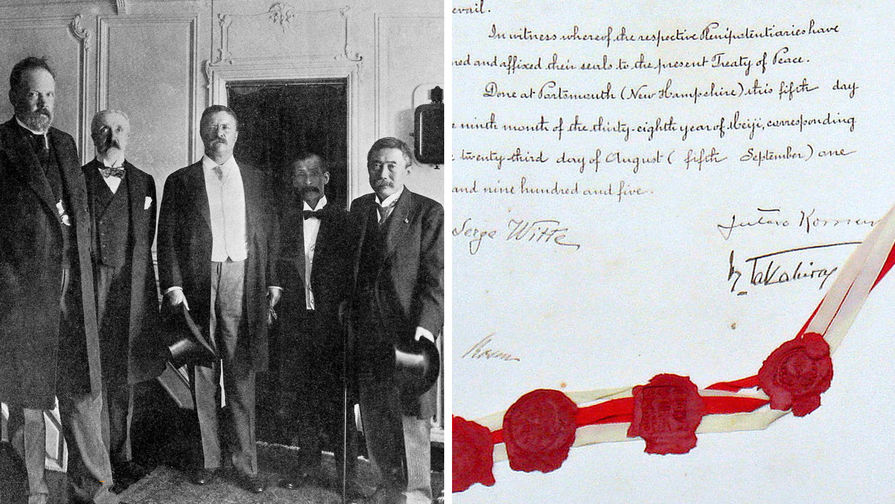 evail.
In witness whereof, the respective Plenipotentiaries have
ned and affixed their seals to the present Treaty of Peace.
Done at Portsmouth (New Hampshire) this fifth day
e ninth month of the thirty-eighth year of Meiji, corresponding
e twenty-third day of August (fifth September) one
and nine hundred and five.
Serge Witte
Jutaro Komura
Rosen
K. Takahira